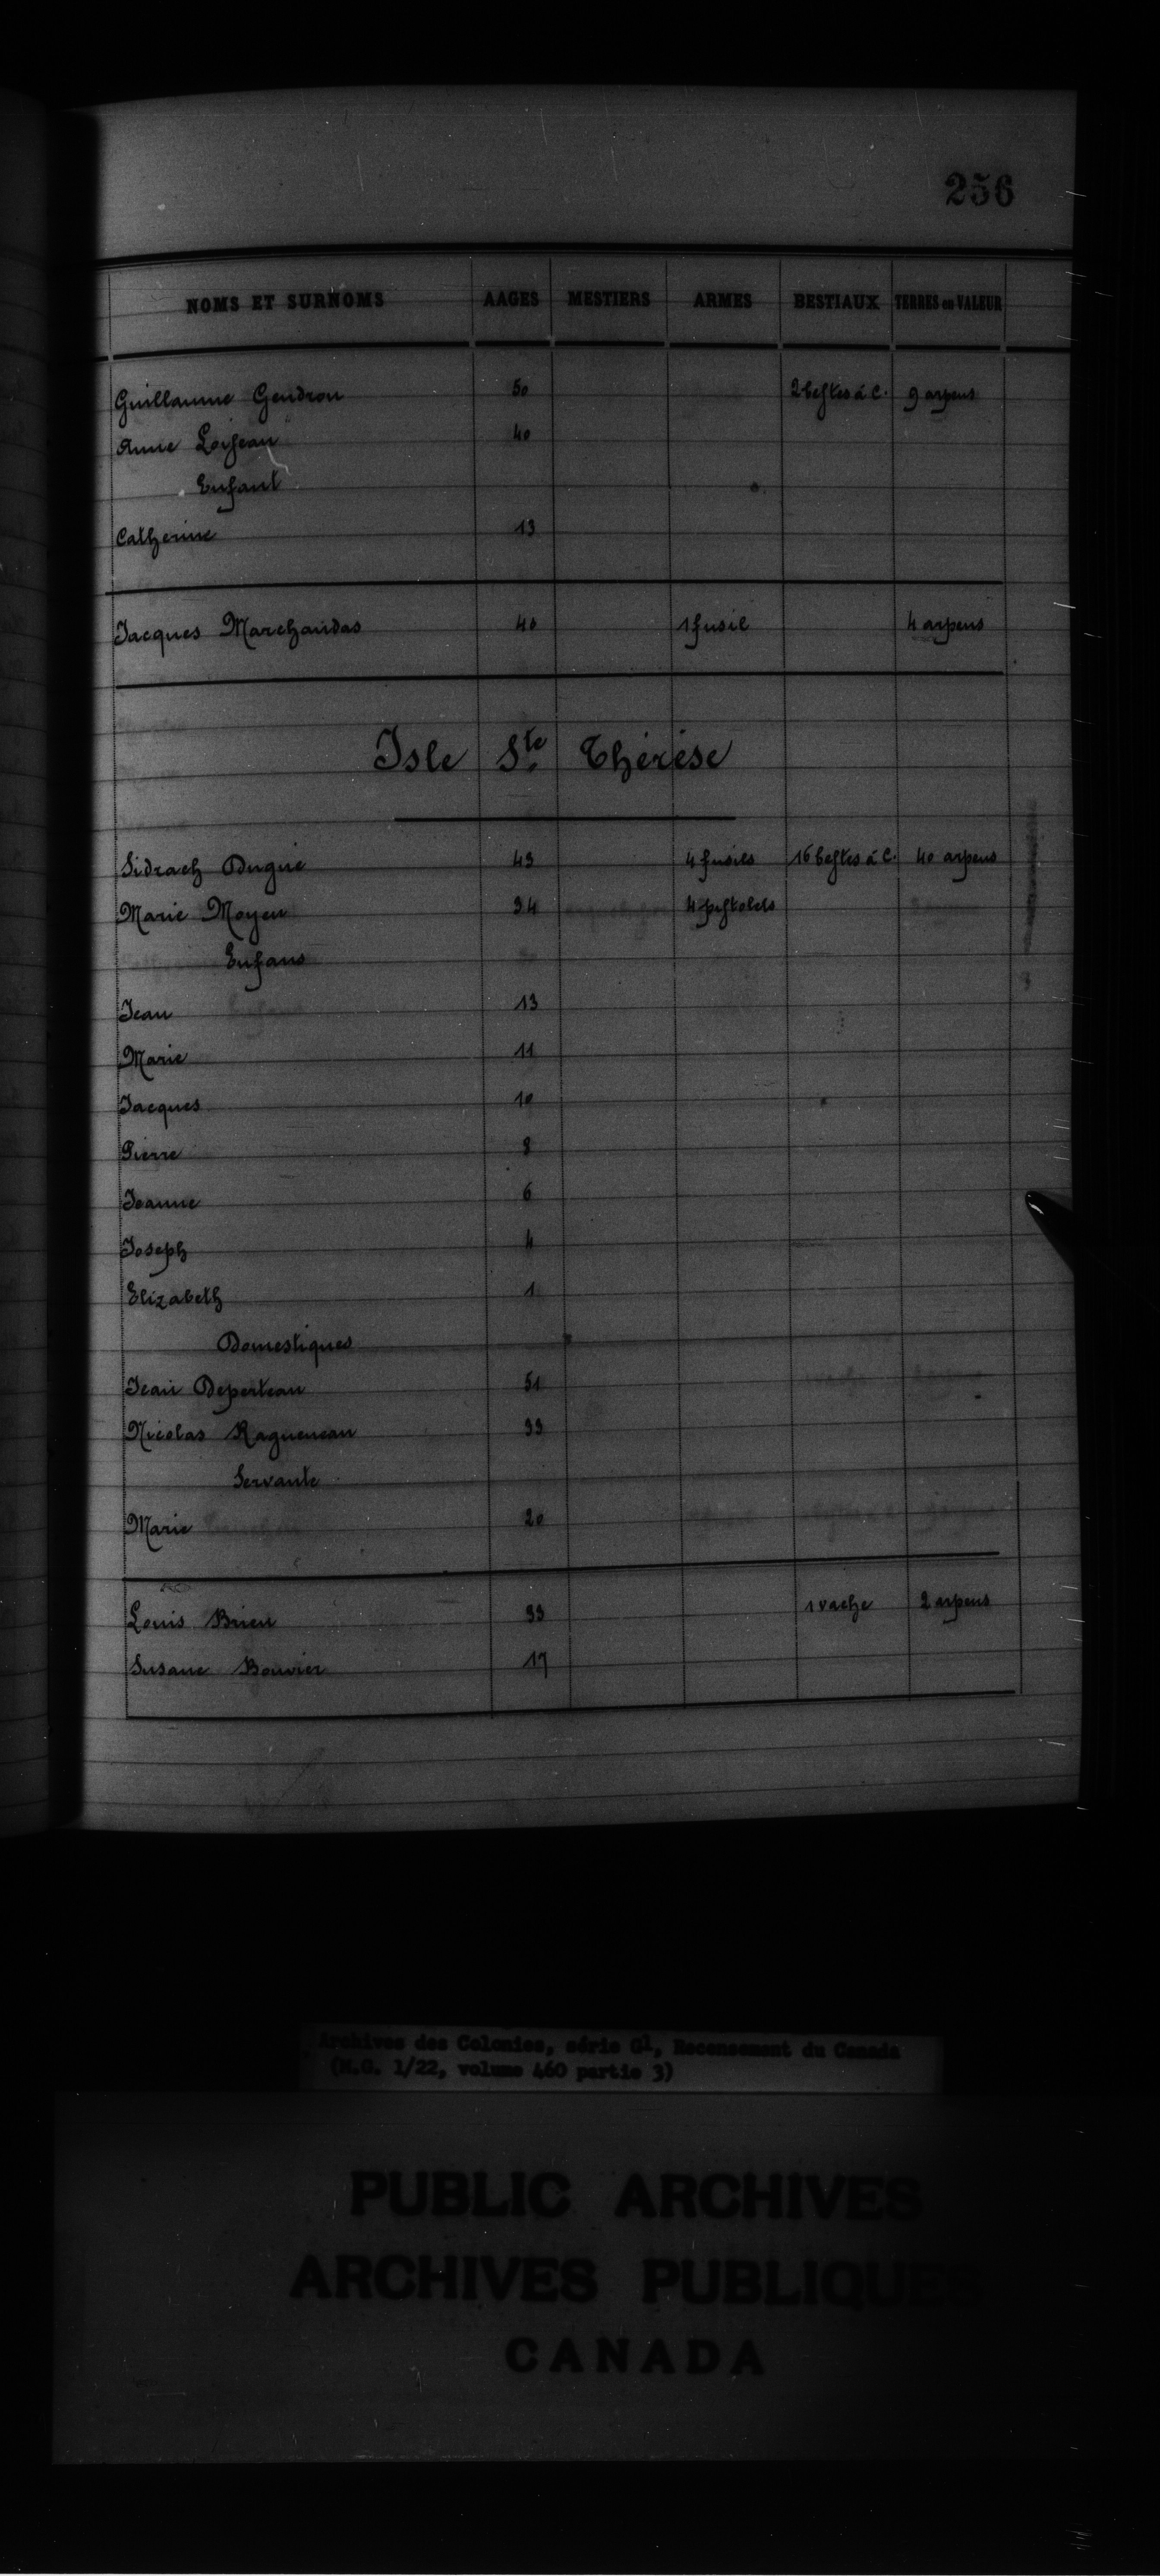 256
NOMS ET SURNOMS AAGES MESTIERS ARMES BESTIAUX TERRES ou VALEUR
Guillaume Gendron 50 2 bestes à C. 9 arpens
Anne Loiseau 40
Enfant
Catherine 13
Jacques Marchandas 40 1 fusil 4 arpens
Isle Ste Thérèse
Sidrach Dugué 43 4 fusils 16 bestes à C. 40 arpens
Marie Moyen 34 4 pistolets
Enfans
Jean 13
Marie 11
Jacques 10
Pierre 8
Jeanne 6
Joseph 4
Elizabeth 1
Domestiques
Jean Deperteau 51
Nicolas Ragueneau 33
Servante
Marie 20
Louis Brien 33 1 vache 2 arpens
Susane Bouvier 17
Archives des Colonies, série G1, Recensement du Canada
(M.G. 1/22, volume 460 partie 3)
PUBLIC ARCHIVES
ARCHIVES PUBLIQUES
CANADA